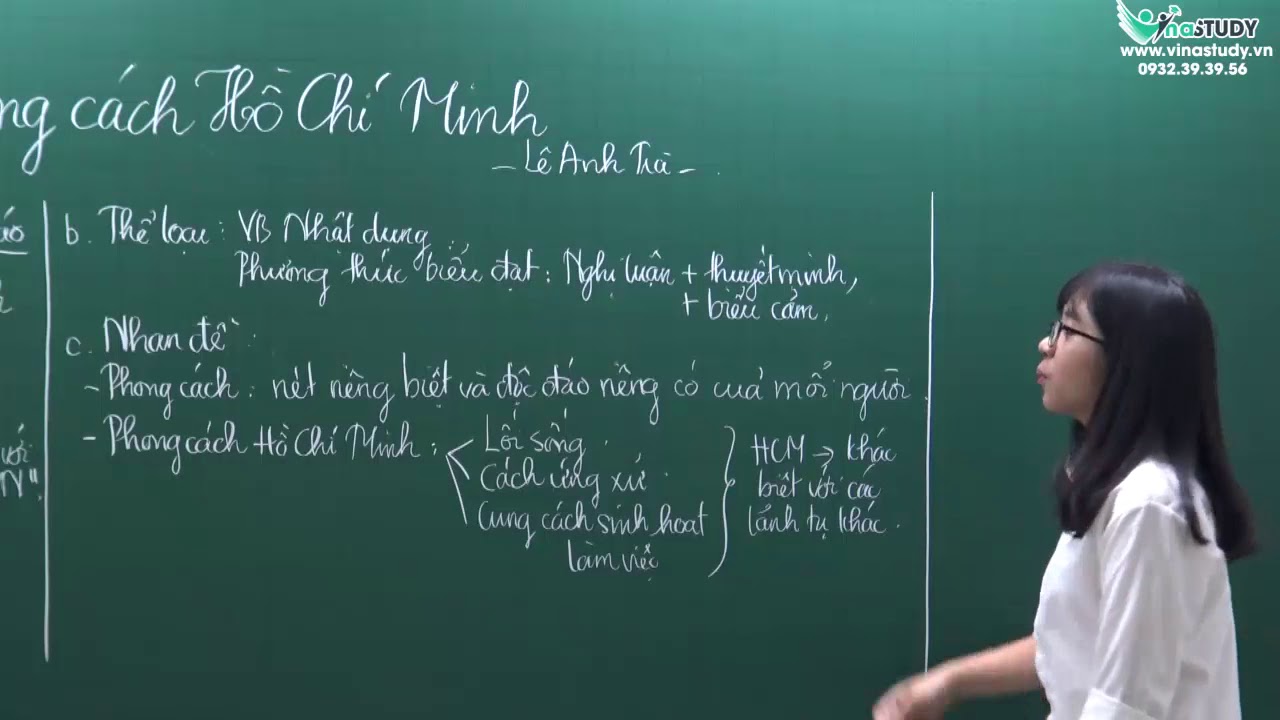 VinaSTUDY
www.vinastudy.vn
0932.39.39.56
ng cách Hồ Chí Minh
- Lê Anh Trà - .
b. Thể loại : VB Nhật dụng
Phương thức biểu đạt : Nghị luận + thuyết minh,
+ biểu cảm,
c. Nhan đề :
- Phong cách : nét riêng biệt và độc đáo riêng có của mỗi người.
- Phong cách Hồ Chí Minh :
Lối sống.
Cách ứng xử.
Cung cách sinh hoạt
làm việc
HCM → khác
biệt với các
lãnh tụ khác.
với
N".